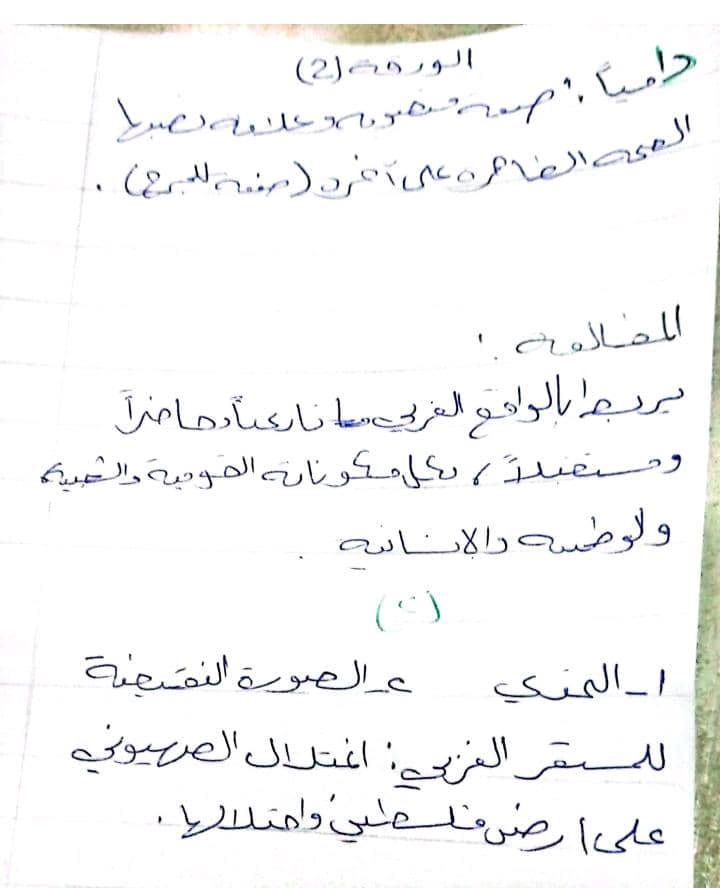 الورقة (2)
دامياً: صفة منصوبة وعلامة نصبها
الفتحة الظاهرة على آخره (صفة للجرح).
المضالعة:
يربط بالواقع العربي تاريخياً وحاضراً
ومستقبلاً، بكل مكوناته القومية والشعبية
والوطنية والإنسانية.
(ت)
١- التحدي ٢- الصورة النقيضة
للمستقر العربي: اغتلال الصهيوني
على ارض فلسطين واحتلالها.